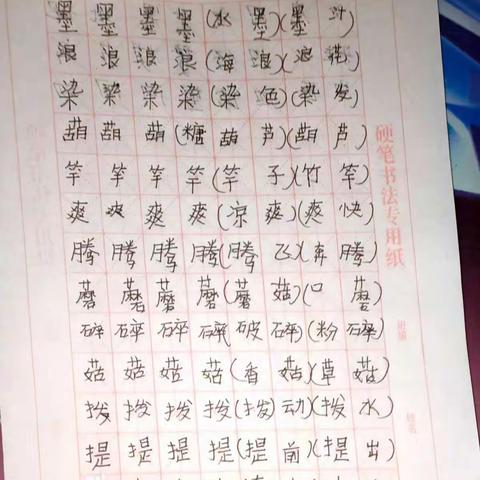 墨 墨 墨 墨(水 墨)(墨 汁)
浪 浪 浪 浪(海 浪)(浪 花)
染 染 染 染(染 色)(染 发)
葫 葫 葫(糖 葫 芦)(葫 芦)
竿 竿 竿 竿(竿 子)(竹 竿)
爽 爽 爽 爽(凉 爽)(爽 快)
腾 腾 腾 腾(腾 飞)(奔 腾)
蘑 蘑 蘑 蘑(蘑 菇)(口 蘑)
碎 碎 碎 碎(破 碎)(粉 碎)
菇 菇 菇 菇(香 菇)(草 菇)
拨 拨 拨 拨(拨 动)(拨 水)
提 提 提 提(提 前)(提 出)
硬笔书法专用纸
班级
姓名